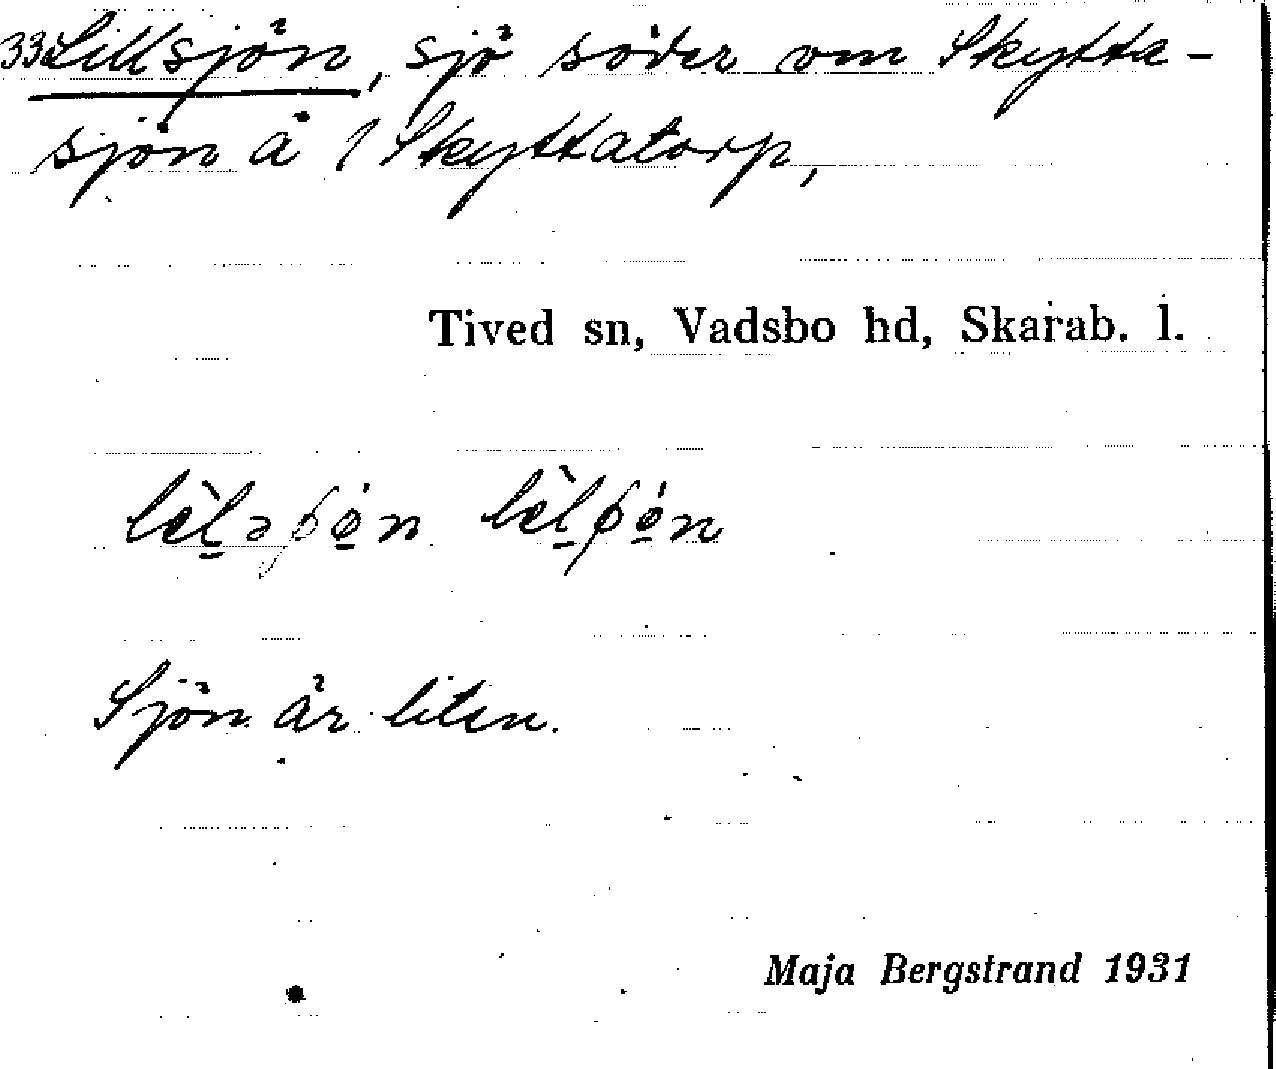 33 Lillsjön, sjö söder om Skytta-
sjön å 1 Skyttatorp,
Tived sn, Vadsbo hd, Skarab. l.
Sjön är liten.
Maja Bergstrand 1931